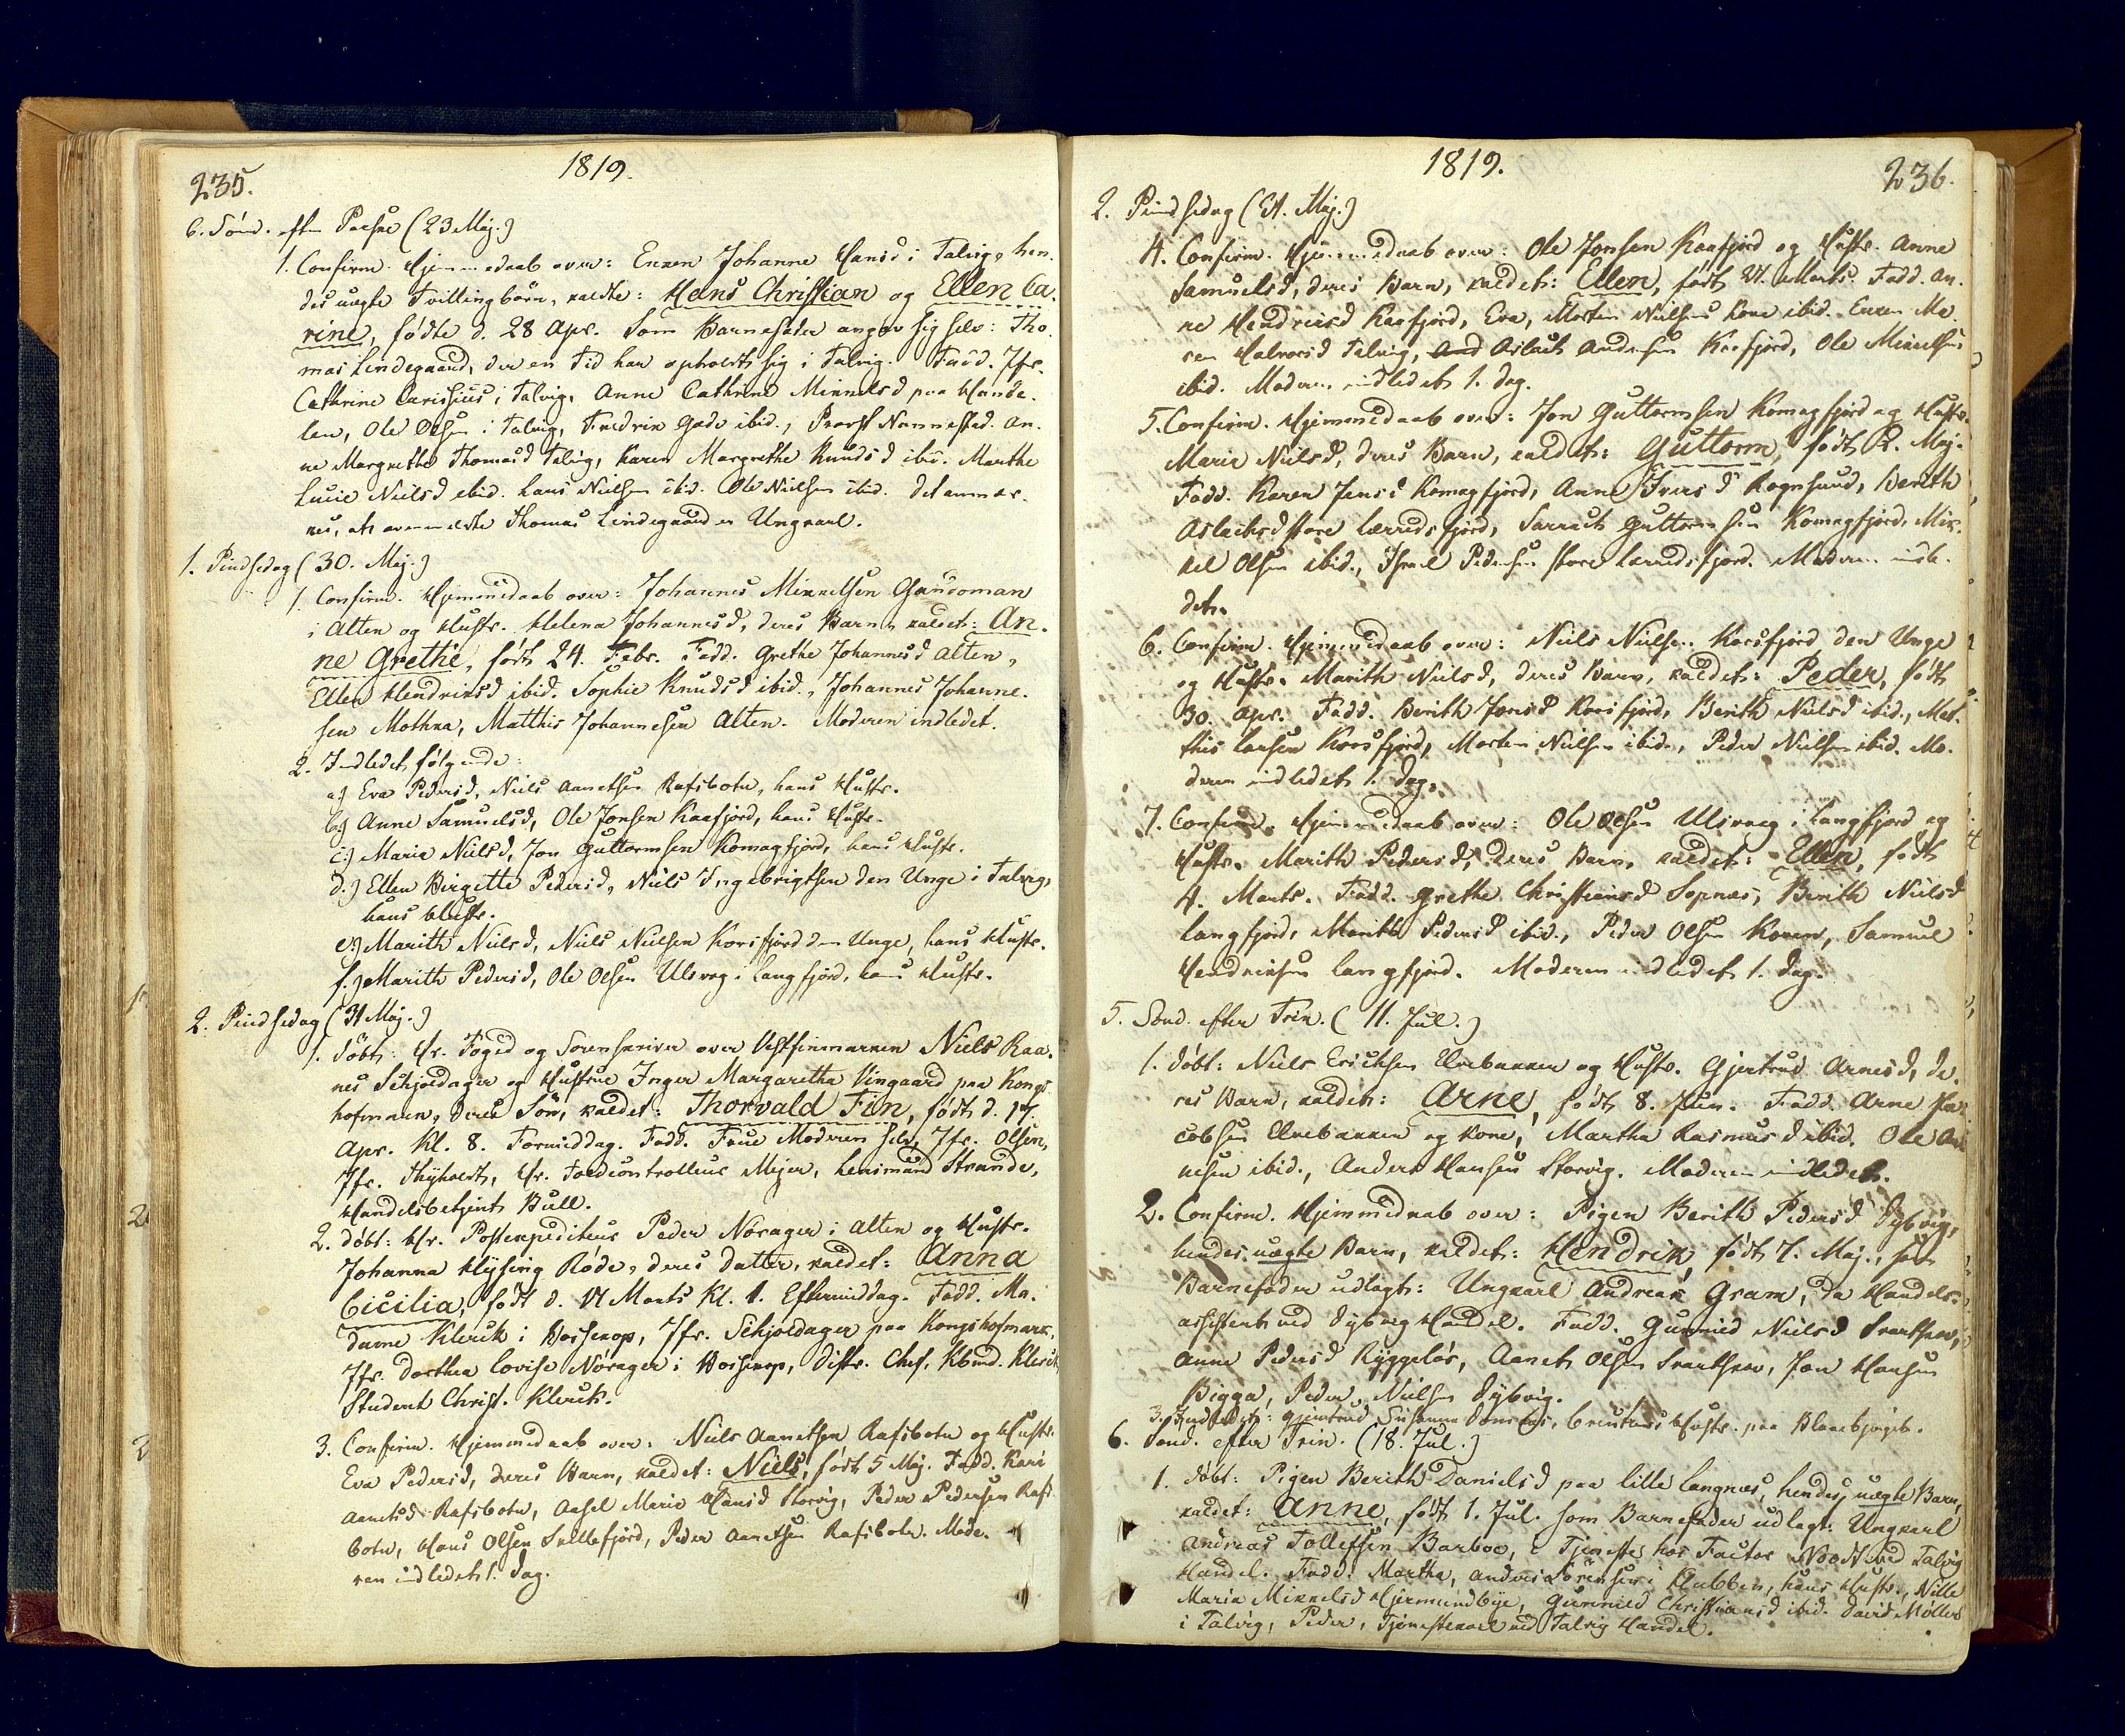 235.
1819.
6. Sönd. efter Paaske (23 Maj.)
1. Confirm. Hjemmedaab over: Enken Johanne Hansd i Talvig, hen-
des uægte Tvillingbörn, kaldte: Hans Christian og Ellen Ca-
rine, fødte d. 28 Apr. Som Barnefader angav sig selv: Tho-
mas Lindegaard, der en Tid har opholdt sig i Talvig. Fadd. Jfr.
Cathrine Carissius i Talvig, Anne Cathrine Mikkelsd paa Hande-
len, Ole Olsen i Talvig, Fredrik Gade ibid., Provst Nannestad. An-
ne Margrethe Thomasd Talvig, Karen Margrethe Knudsd ibid. Marthe
Lucie Nielsd ibid. Hans Nielsen ibid. Ole Nielsen ibid. Det anmær-
kes, at ovenmeldte Thomas Lindegaard er Ungkarl.
1. Pindsedag (30. Maj.)
1. Confirm. Hjemmedaab over: Johannes Mikkelsen Gandoman
i Alten og Hustr. Helena Johannesd, deres Barn, kaldet: An-
ne Grethe, født 24. Febr. Fadd. Grethe Johannesd Alten,
Ellen Hendriksd ibid. Sophie Knudsd ibid., Johannes Johanne-
sen Mothka, Matthis Johannesen Alten. Moderen indledet.
2. Indledet følgende:
a.) Eva Pedersd, Niels Aanetsen Rafsbotn, hans Hustr.
b.) Anne Samuelsd, Ole Jonsen Kaafjord, hans Hustr.
c.) Maria Nielsd, Jon Guttormsen Komagfjord, hans Hustr.
d.) Ellen Birgitte Pedersd, Niels Ingebrigtsen den Unge i Talvig,
hans Hustr.
e.) Marith Nielsd, Niels Nielsen Korsfjord den Unge, hans Hustr.
f.) Marith Pedersd, Ole Olsen Ulsvog i Langfjord, hans Hustr.
2. Pindsedag (31 Maj.)
1. Döbt: Hr. Foged og Sorenskriver over Vestfinmarken Niels Raa-
nes Schjeldager og Hustrue Inger Margaretha Vingaard paa Kongs-
hofmarken, deres Sön, kaldet: Thorvald Fin, født d. 17.
Apr. Kl. 8. Formiddag. Fadd. Frue Moderen selv, Jfr. Olsen,
Jfr. Thyholdt, Hr. Toldcontrolleur Mejer, Lensmand Strande,
Handelsbetjent Bull.
2. Döbt: Hr. Postexpediteur Peder Norager i Alten og Hustr.
Johanna Klysing Röde, deres Datter, kaldet: Anna
Cicilia, født d. 21 Marts Kl. 1. Eftermiddag. Fadd. Ma-
dame Klerck i Bossekop, Jfr. Schjeldager paa Kongshofmark,
Jfr. Dorthea Lovise Nørager i Bossekop, Distr. Chef, Kbmd. Klerck,
Student Christ. Klerck.
3. Confirm. Hjemmedaab over: Niels Aanetsen Rafsbotn og Hustr.
Eva Pedersd, deres Barn, kaldet: Niels, født 5 Maj. Fadd. Kari
Aanetsd Rafsbotn, Aasel Marie Hansd Storvig, Peder Pedersen Rafs-
botn, Hans Olsen Tallefjord, Peder Aanetsen Rafsbotn. Mode-
ren indledet 1. Dag.
1819.
236.
2. Pindsedag (31. Maj.)
4. Confirm. Hjemmedaab over: Ole Jonsen Kaafjord og Hustr. Anne
Samuelsd, deres Barn, kaldet: Ellen, født 21. Marts. Fadd. An-
ne Hendriksd Kaafjord, Eva, Morten Nielsens Kone ibid. Enken Ma-
ren Halvorsd Talvig, And Aslach Andersen Kaafjord, Ole Mikkelsen
ibid. Moderen indledet 1. Dag.
5. Confirm. Hjemmedaab over: Jon Guttormsen Komagfjord og Hustr.
Maria Nielsd, deres Barn, kaldet: Guttorm, født 2. Maj.
Fadd. Karen Jensd Komagfjord, Anne Iversd Rognsund, Berith
Aslachsd Store Lerredsfjord, Sarrach Guttormsen Komagfjord, Mik-
kel Olsen ibid., Israel Pedersen Store Lerredsfjord. Moderen indle-
det.
6. Confirm. Hjemmedaab over: Niels Nielsen Korsfjord den Unge
og Hustr. Marith Nielsd, deres Barn, kaldet: Peder, født
30. Apr. Fadd. Berith Jonsd Korsfjord, Berith Nielsd ibid., Mat-
this Larsen Korsfjord, Morten Nielsen ibid., Peder Nielsen ibid. Mo-
deren indledet 1. Dag.
7. Confirm. Hjemmedaab over: Ole Olsen Ulsvaag i Langfjord og
Hustr. Marith Pedersd, deres Barn, kaldet: Ellen, født
4. Marts. Fadd. Grethe Christiansd Sopnæs, Berith Nielsd
Langfjord, Marith Pedersd ibid., Peder Olsen Koven, Samuel
Hendriksen Langfjord. Moderen indledet 1. Dag.
5. Sönd. efter Trin. (11. Jul.)
1. Döbt: Niels Ericksen Elvebakken og Hustr. Gjertrud Arnesd, de-
res Barn, kaldet: Arne, født 8. Jun. Fadd. Arne Ja-
cobsen Elvebakken og Kone, Martha Rasmusd ibid. Ole Ar-
nesen ibid., Anders Hansen Storvig. Moderen indledet.
2. Confirm. Hjemmedaab over: Pigen Berith Pedersd Dybvig,
hendes uægte Barn, kaldet: Hendrik, født 7. Maj., som
Barnefader udlagt: Ungkarl Andreas Gram, da Handels-
assistent ved Dybvig Handel. Fadd. Gunnild Nielsd Svartskov,
Anne Pedersd Ryggelös, Aanet Olsen Svartskov, Jon Hansen
Bigga, Peder Nielsen Dybvig.
3. Indledet: Gjertrud Susanna Hustr. paa
6. Sönd. efter Trin. (18. Jul.)
1. Döbt: Pigen Berith Danielsd paa lille Langnæs, hendes uægte Barn,
kaldet: Anne, født 1. Jul. Som Barnefader udlagt: Ungkarl
Andreas Tollefsen Barboe, i Tjeneste hos Factor Noodt ved Talvig
Handel. Fadd. Martha, Anders Sörensens i Klubben, hans Hustr., Nille
Maria Mikkelsd Hjermundbye, Gunnild Christiansd ibid. David Möller
i Talvig, Peder, Tjenestekarl ved Talvig Handel.